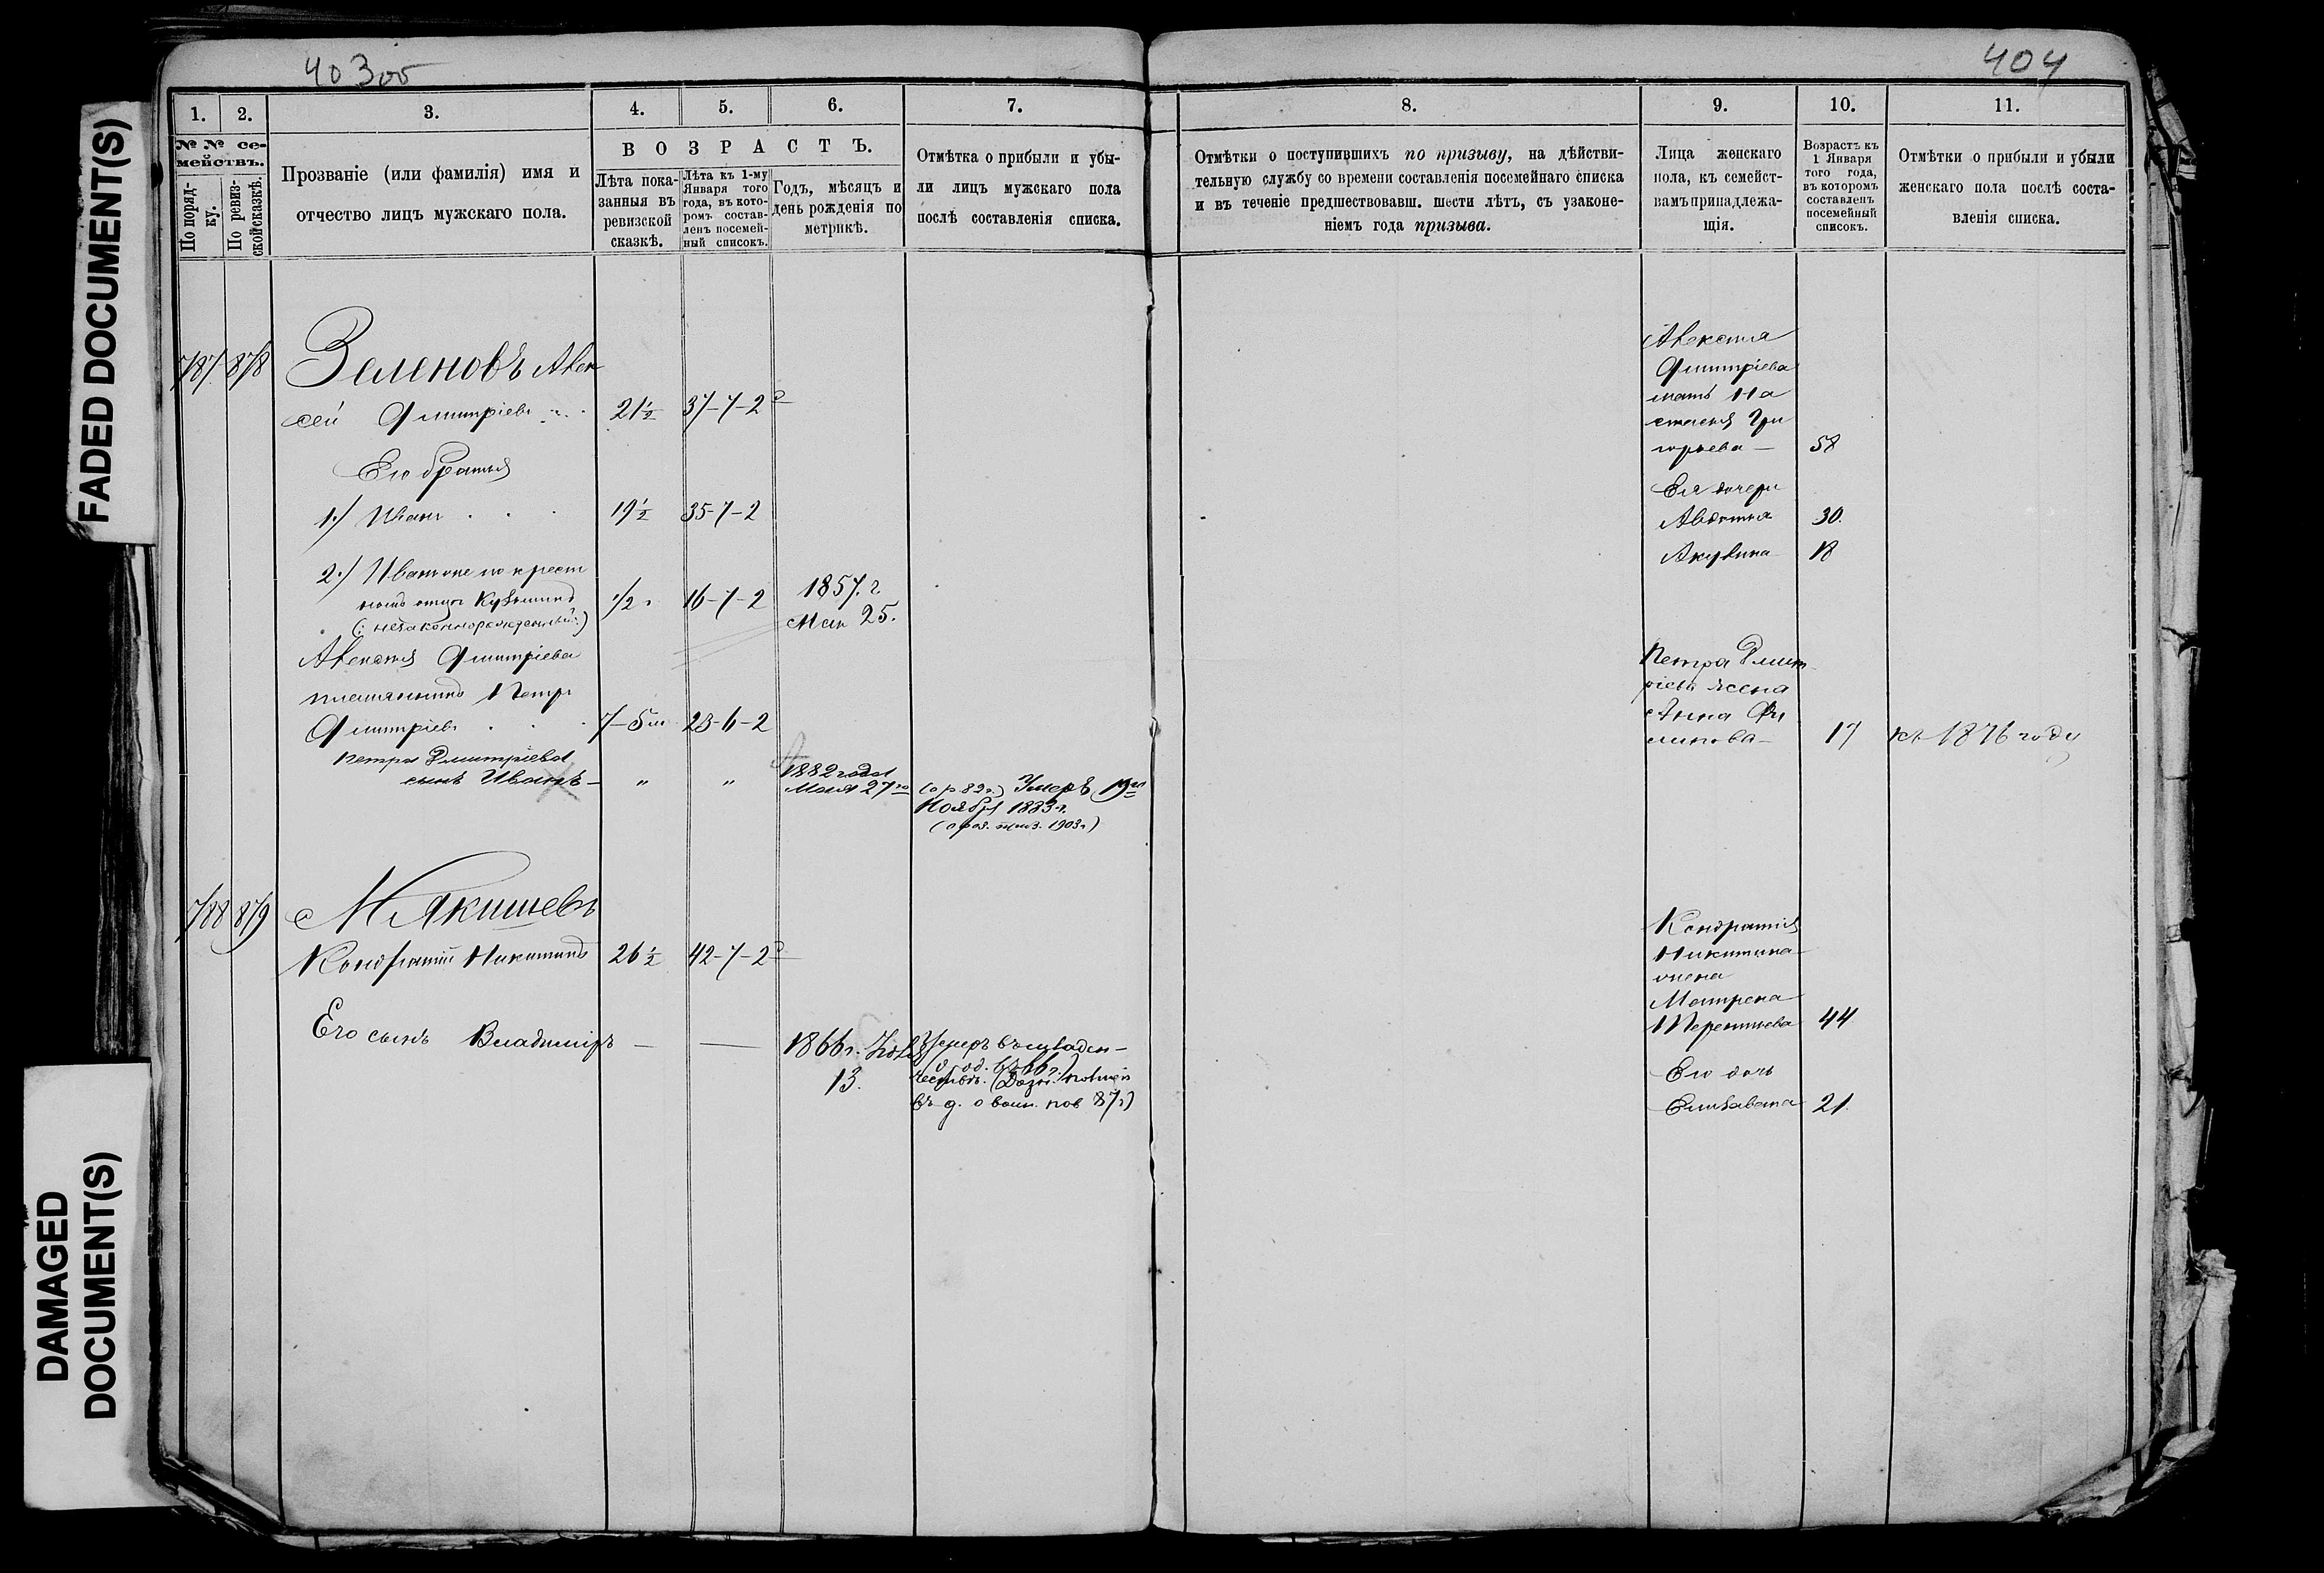 FADED DOCUMENT(S)
DAMAGED
DOCUMENT(S)
403об
1. 2. 3. 4. 5. 6. 7.
№ № се-
мействъ.
По поряд-
ку.
По ревиз-
ской сказкѣ.
Прозваніе (или фамилія) имя и
отчество лицъ мужскаго пола.
ВОЗРАСТЪ.
Лѣта пока-
занныя въ
ревизской
сказкѣ.
Лѣта къ 1-му
Января того
года, въ кото-
ромъ состав-
ленъ посемей-
ный списокъ.
Годъ, мѣсяцъ и
день рожденія по
метрикѣ.
Отмѣтка о прибыли и убы-
ли лицъ мужскаго пола
послѣ составленія списка.
787 878 Зеленовъ Алек
сей Дмитріевъ 21½ 37-7-2
Его братья
1.) Иванъ 19½ 35-7-2
2.) Иванъ же по крест
ному отцу Кузьминъ ½ 16-7-2 1857 г
(: незаконнорожденный :) Мая 25.
Алексея Дмитріева
племянникъ Петръ
Дмитріевъ 7-5 м 23-6-2
Петра Дмитріева
сынъ Иванъ — " " 1882 года
Мая 27го
(о р. 82 г.) Умеръ 19го
Ноября 1883 г.
(о роз. приз. 1903 г)
788 879 Мякишевъ
Кондратій Никитинъ 26½ 42-7-2
Его сынъ Владиміръ — — 1866 г.
13.
Умеръ въ младен-
чествѣ.
въ д. о воин. пов 87 г)
404
8. 9. 10. 11.
Отмѣтки о поступившихъ по призыву, на дѣйстви-
тельную службу со времени составленія посемейнаго списка
и въ теченіе предшествовавш. шести лѣтъ, съ узаконе-
ніемъ года призыва.
Лица женскаго
пола, къ семейст-
вамъ принадлежа-
щія.
Возрастъ къ
1 Января
того года,
въ которомъ
составленъ
посемейный
списокъ.
Отмѣтки о прибыли и убыли
женскаго пола послѣ соста-
вленія списка.
Алексея
Дмитріева
мать На
стасья Гри
горьева — 58
Ея дочери
Авдотья 30.
Акулина 18
Петра Дмит
ріева жена
Анна Фи
липова — 17 къ 1876 году
Кондратія
Никитина
жена
Матрена
Терентьева 44
Его дочь
Елизавета 21